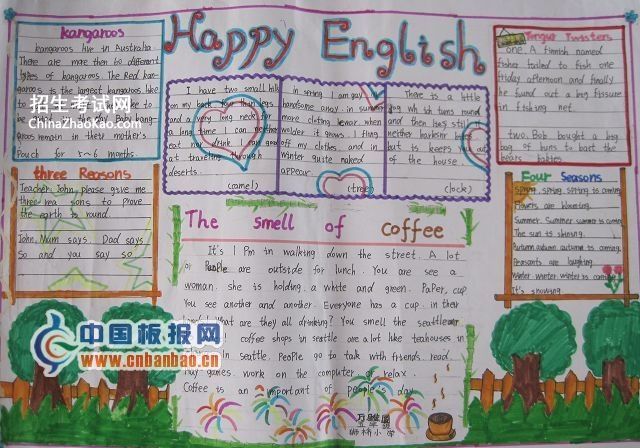 Happy English
kangaroos
kangaroos live in Australia.
There are more then 50 different
types of kangaroos. The Red kan-
garoos is the largest kangaroos
like
to be
in the day. Baby kang-
garoos remain in their mother's
Pouch for 5~6 months.
招生考试网
ChinaZhaoKao.com
three Reasons
Teacher: John, please give me
three rea sons to prove
the earth is round.
John: Mum says. Dad says.
So and you say so.
I have two small hills
on my back four than legs
and a very long neck for
a long time I can neither
eat nor drink. I am good
at traveling through
deserts.
(camel)
In spring I am gay
handsome array: in summer
more cloting I wear when
colder it grows. I fling
off my clothes. and in
winter quite naked
appear.
(tree)
There is a little
dog which turns round
and then has still
neither harkinr
but is keeps you out
of the house.
(lock)
Tongue Twisters
one. A finnish named
fisher failed to fish one
friday afternoon and finally
he found out a big fissure
in fishing net.
two. Bob bought a big
bag of buns to bait the
bears babies.
Four Seasons
Spring, spring, spring is coming.
Flowers are blooming.
Summer. Summer. summer is coming
The sun is shining.
Autumn. autumn. autumn is coming.
Peasants are laughing.
Winter. winter. winter is coming
It's snowing.
The smell of coffee
It's 1 Pm in walking down the street. A lot
of People are outside for lunch. You are see a
woman. she is holding. a white and green. Paper, cup
You see another and another. Everyone has a cup. in their
hand! What are they all drinking? You smell the seattle air
coffee shops in seattle are a lot like teahouses in
in seattle. People go to talk with friends. read.
Play games. work on the computer or relax.
Coffee is an important of people's day.
中国板报网
www.cnbanbao.cn
小学